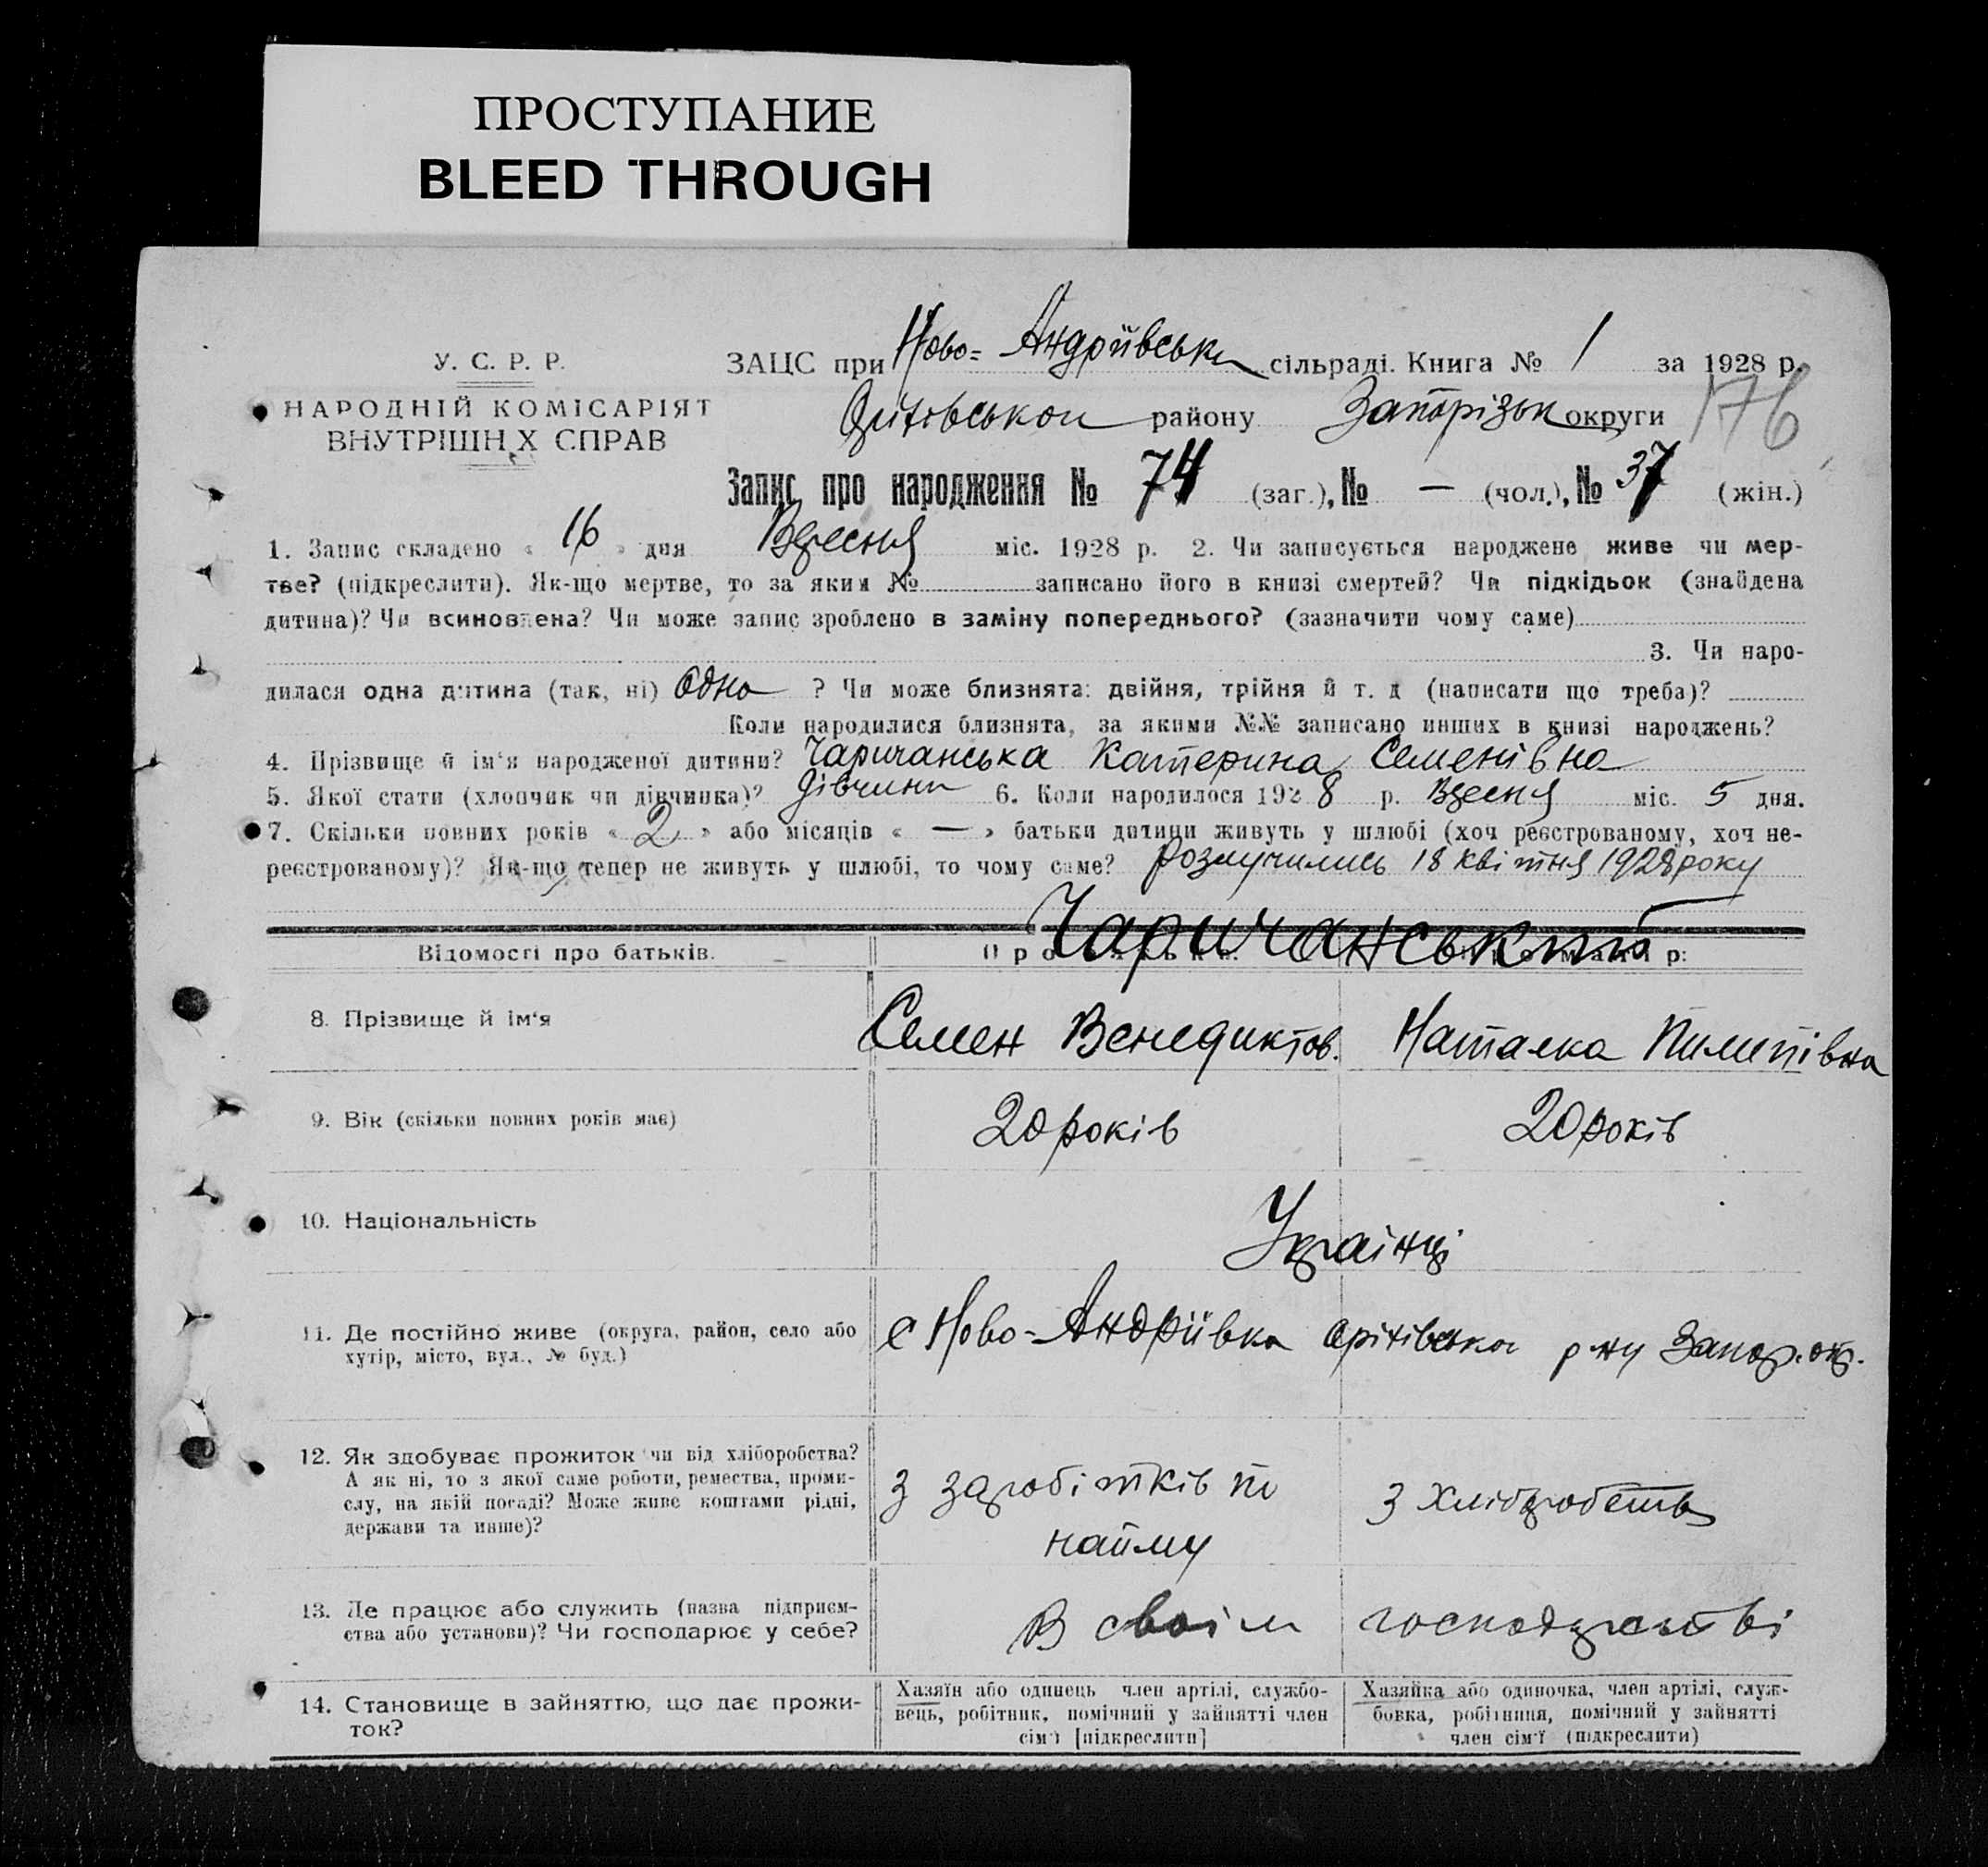 ПРОСТУПАНИЕ
BLEED THROUGH
У. С. Р. Р.
НАРОДНІЙ КОМІСАРІЯТ
ВНУТРІШН Х СПРАВ
ЗАЦС при Ново-Андріївськ сільраді. Книга № 1 за 1928 р.
району Запорізьк округи 176
Запис про народження № 74 (заг.), № — (чол.), № 37 (жін.)
1. Запис складено « 16 » дня Вересня міс. 1928 р. 2. Чи записується народжене живе чи мер-
тве? (підкреслити). Як-що мертве, то за яким № записано його в книзі смертей? Чи підкідьок (знайдена
дитина)? Чи всиновлена? Чи може запис зроблено в заміну попереднього? (зазначити чому саме)
3. Чи наро-
дилася одна дитина (так, ні) Одна ? Чи може близнята: двійня, трійня й т. д (написати що треба)?
Коли народилися близнята, за якими №№ записано инших в книзі народжень?
4. Прізвище й ім'я народженої дитини? Чаричанська Катерина Семенівна
5. Якої стати (хлопчик чи дівчинка)? дівчини 6. Коли народилося 1928 р. Вресня міс. 5 дня.
7. Скільки повних років « 2 » або місяців « — » батьки дитини живуть у шлюбі (хоч реєстрованому, хоч не-
реєстрованому)? Як-що тепер не живуть у шлюбі, то чому саме? розлучились 18 квітня 1928 року
Чаричанський
Відомості про батьків.
8. Прізвище й ім'я Семен Венедиктов. Наталка Пилипівна
9. Вік (скільки повних років має) 20 років 20 років
10. Національність Українці
11. Де постійно живе (округа, район, село або
хутір, місто, вул., № буд.)
с Ново-Андріївка р-ну Запор. окр.
12. Як здобуває прожиток чи від хліборобства?
А як ні, то з якої саме роботи, ремества, проми-
слу, на якій посаді? Може живе коштами рідні,
держави та инше)?
З заробітків по
найму
З хліборобства
13. Де працює або служить (назва підприєм-
ства або установи)? Чи господарює у себе?
В своім господарстві
14. Становище в зайняттю, що дає прожи-
ток?
Хазяїн або одинець член артілі, службо-
вець, робітник, помічний у зайнятті член
сім'ї [підкреслити]
Хазяйка або одиночка, член артілі, служ-
бовка, робітниця, помічний у зайнятті
член сім'ї (підкреслити)